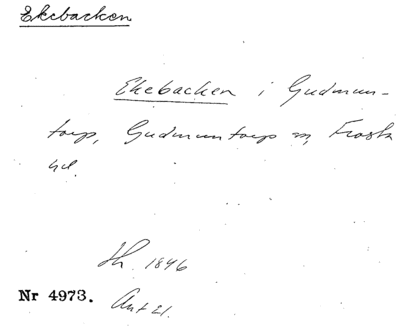 Ekebacken
Ekebacken i Gudmun-
torp, Gudmuntorps sn, Frosta
hd.
1846
Nr 4973. Ant 21.